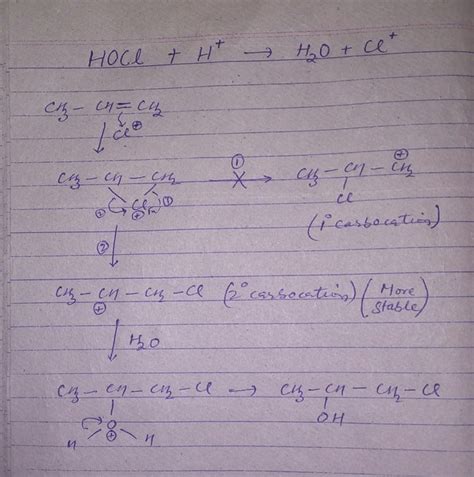 HOCl + H⁺ → H₂O + Cl⁺
CH₃ – CH = CH₂
↓ Cl⊕
CH₃ – CH – CH₂ ① ✗→ CH₃ – CH – CH₂ ⊕
② Cl ⊕ ① Cl
② ↓ (1° carbocation)
CH₃ – CH – CH₂ – Cl (2° carbocation) (More stable)
⊕
↓ H₂O
CH₃ – CH – CH₂ – Cl → CH₃ – CH – CH₂ – Cl
O OH
H ⊕ H